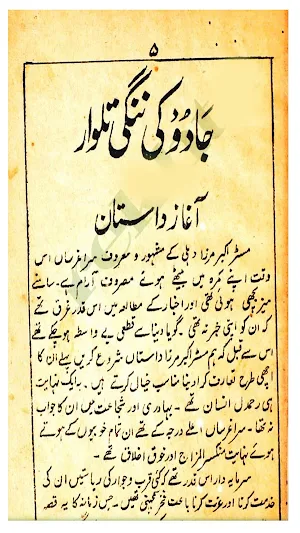 ۵
جادُو کی ننگی تلوار
آغاز داستان
مسٹر اکبر مرزا دہلی کے مشہور و معروف سراغرساں اس
وقت اپنے کمرہ میں بیٹھے ہوئے مصروف آرام ہے۔ سامنے
میز بچھی ہوئی تھی اور اخبار کے مطالعہ میں اس قدر غرق تھے
کہ ان کو اپنی خبر نہ تھی۔ گویا دنیا سے قطعی بے واسطہ ہو چکے تھے
اس سے قبل کہ ہم مسٹر اکبر مرزا داستاں شروع کریں پہلے ان کا
اچھی طرح تعارف کرا دینا مناسب خیال کرتے ہیں۔ یہ ایک نہایت
ہی رحمدل انسان تھے۔ بہادری اور شجاعت میں ان کا جواب
نہ تھا۔ سراغرساں اعلےٰ درجہ کے تھے ان تمام خوبیوں کے ہوتے
ہوئے نہایت منکسر المزاج اور خوش اخلاق تھے۔
سرمایہ دار اس قدر تھے کہ کئی قرب و جوار کی ریاستیں ان کی
خدمت کرنا اور عزت کرنا باعث فخر سمجھتی تھیں۔ جس زمانہ کا یہ قصہ